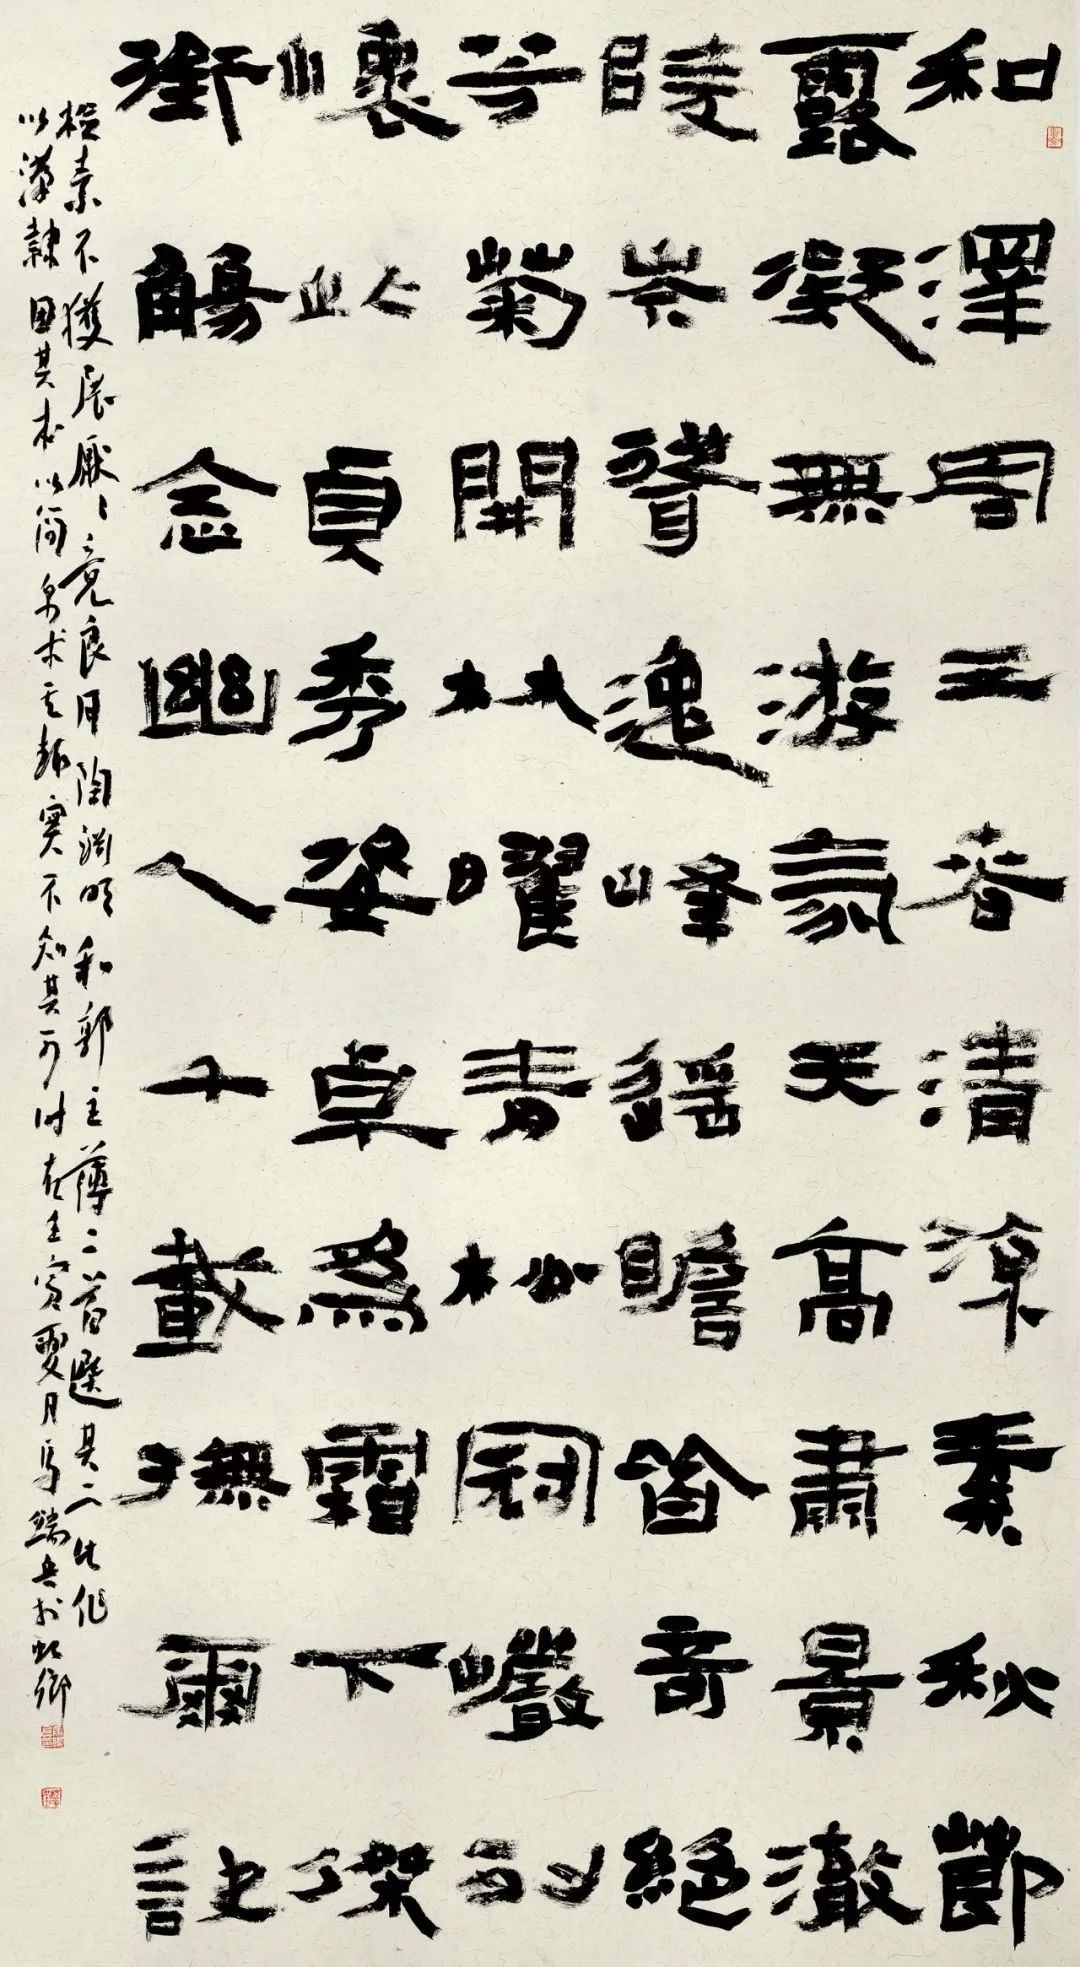 和澤周三春清涼素秋節
露凝無游氛天高肅景澈
陵岑聳逸峰遙瞻皆奇絕
芳菊開林曜青松冠巖列
懷此貞秀姿卓爲霜下傑
銜觴念幽人千載撫爾訣
檢素不獲展厭〻竟良月陶淵明和郭主薄二首選其二此作
以漢隸固其本以簡帛求其趣實不知其可時在壬寅夏月馬兵於虹鄉